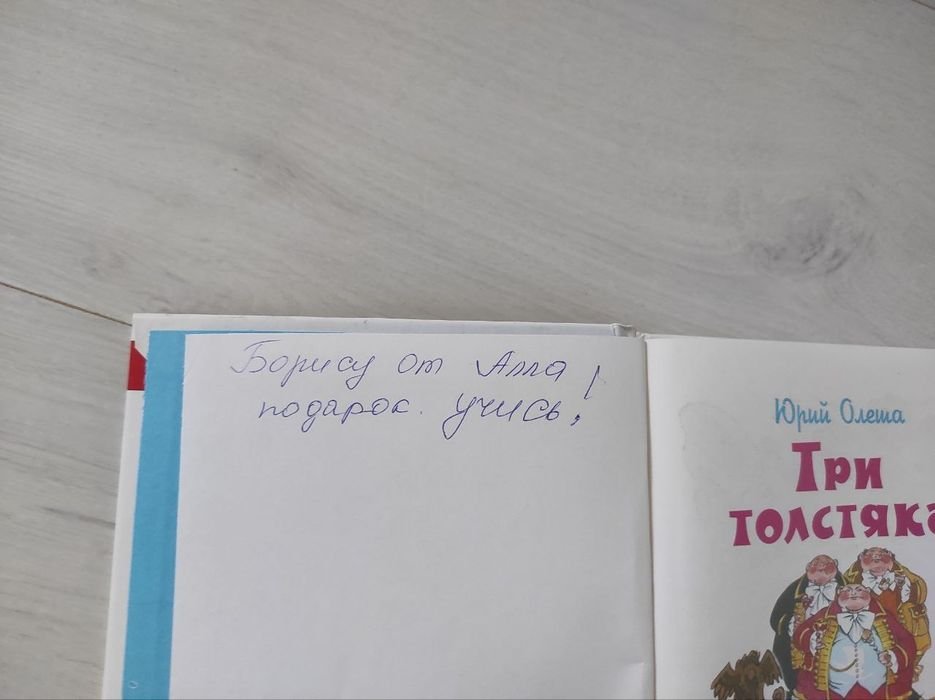 Борису от Алла!
подарос. учись!
Юрий Олеша
Три
толстяка